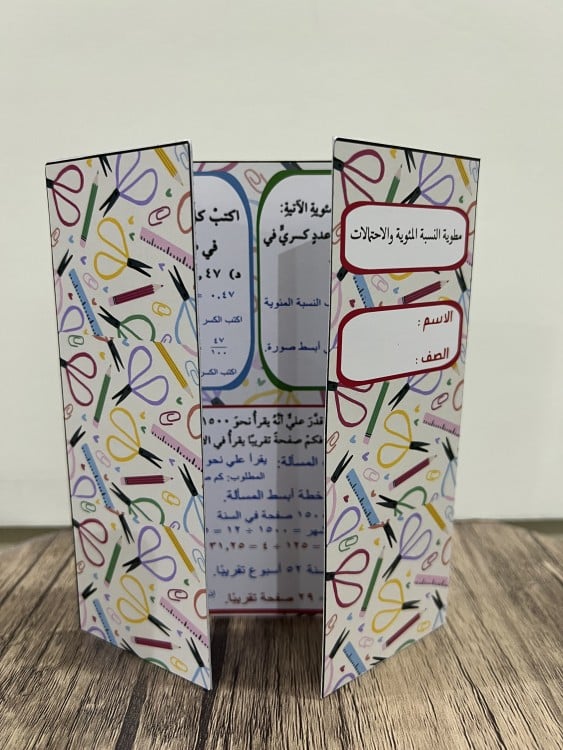 مطوية النسبة المئوية والاحتمالات
الاسم :
الصف :
ئوية الآتية:
عدد كسريٍّ في
ب النسبة المئوية
أبسط صورة.
اكتبْ
في
د) ٤٧,
٠,٤٧ =
اكتب الكسر
٤٧
١٠٠
اكتب الكسر
قدّر عليٌّ أنّهُ يقرأُ نحوَ ١٥٠٠
فكمْ صفحةً تقريبًا يقرأُ في
المسألة: يقرأ علي نحو
المطلوب: كم
خطة أبسط المسألة.
١٥٠٠ صفحة في السنة
شهر = ١٥٠٠ ÷ ١٢ =
= ١٢٥ ÷ ٤ = ٣١,٢٥
سنة ٥٢ أسبوع تقريبًا.
= ٢٩ صفحة تقريبًا.